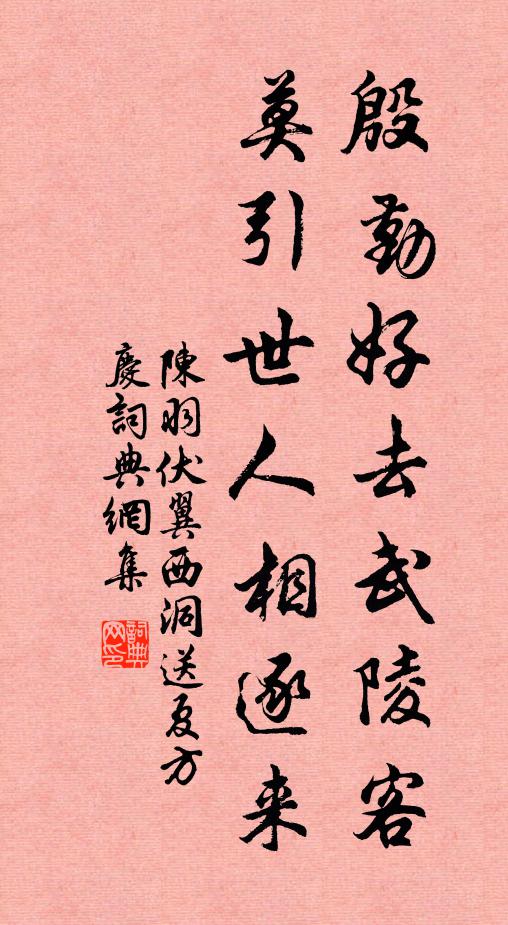 殷勤好去武陵客
莫引世人相逐来
陳羽伏翼西洞送夏方
慶詞典網集
詞典
网印